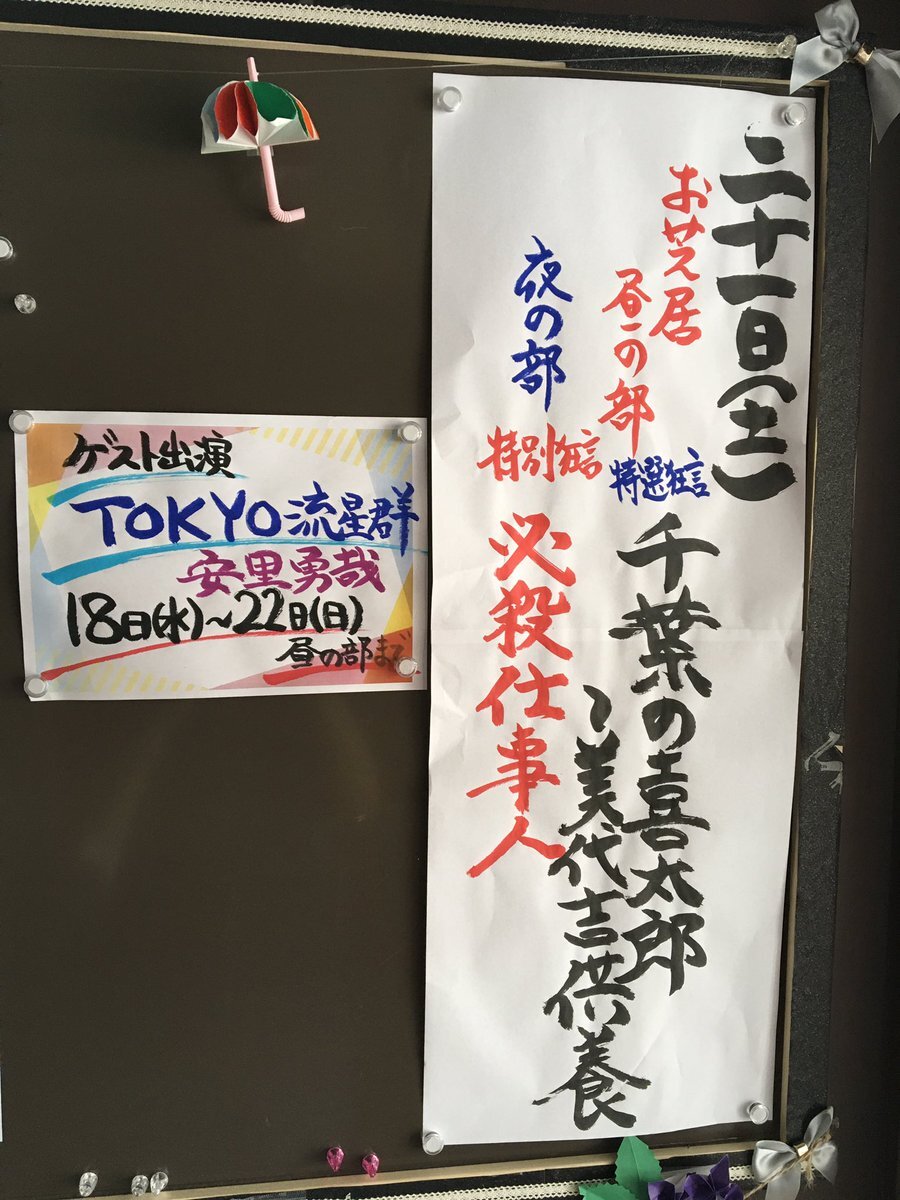 二十一日(土)
お芝居
昼の部
特選狂言
千葉の喜太郎
～美代吉供養
夜の部
特別狂言
必殺仕事人
ゲスト出演
TOKYO流星群
安里勇哉
18日(水)～22日(日)
昼の部まで